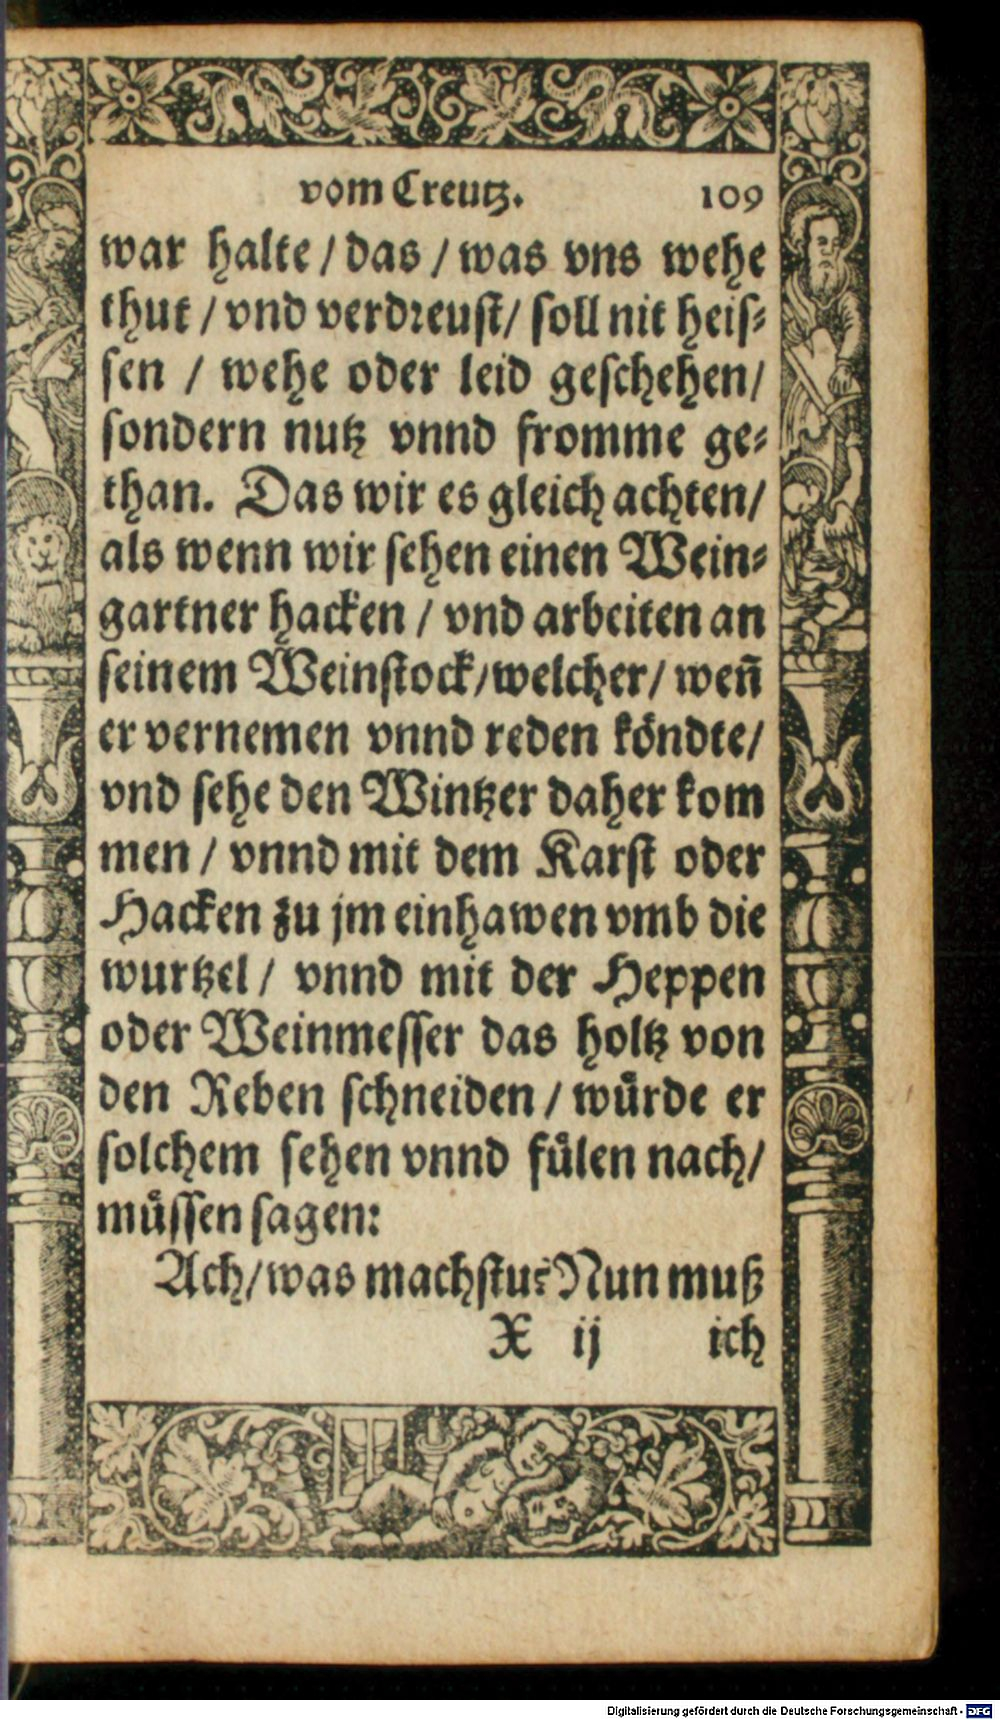 vom Creutz. 109
war halte / das / was vns wehe
thut / vnd verdreust / soll nit heis⸗
sen / wehe oder leid geschehen /
sondern nutz vnnd fromme ge⸗
than. Das wir es gleich achten /
als wenn wir sehen einen Wein⸗
gartner hacken / vnd arbeiten an
seinem Weinstock / welcher / weñ
er vernemen vnnd reden köndte /
vnd sehe den Wintzer daher kom
men / vnnd mit dem Karst oder
Hacken zu jm einhawen vmb die
wurtzel / vnnd mit der Heppen
oder Weinmesser das holtz von
den Reben schneiden / wuͤrde er
solchem sehen vnnd fuͤlen nach /
muͤssen sagen:
Ach / was machstu? Nun muß
X ij ich
Digitalisierung gefördert durch die Deutsche Forschungsgemeinschaft - DFG